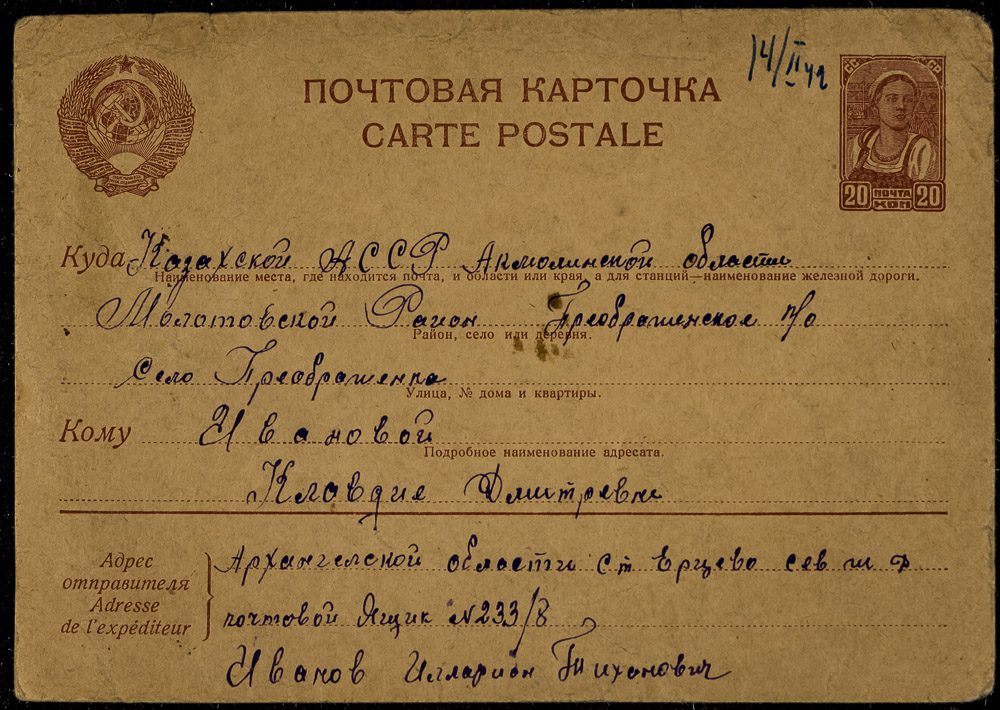 14/II 42
ПОЧТОВАЯ КАРТОЧКА
CARTE POSTALE
СС СР
20 ПОЧТА КОП 20
Куда Казахской АССР Акмолинской области
Наименование места, где находится почта, и области или края, а для станций—наименование железной дороги.
Молотовской Район Преображенское п/о
Район, село или деревня.
село Преображенка
Улица, № дома и квартиры.
Кому Ивановой
Подробное наименование адресата.
Клавдие Дмитревне
Адрес отправителя
Adresse de l'expéditeur
Архангелской области ст Ерцево сев ж д
почтовой Ящик №233/8
Иванов Илларион Тихонович